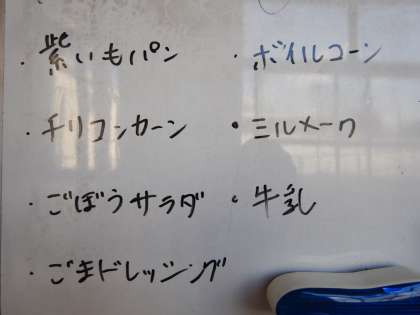 ・紫いもパン
・チリコンカーン
・ごぼうサラダ
・ごまドレッシング
・ボイルコーン
・ミルメーク
・牛乳